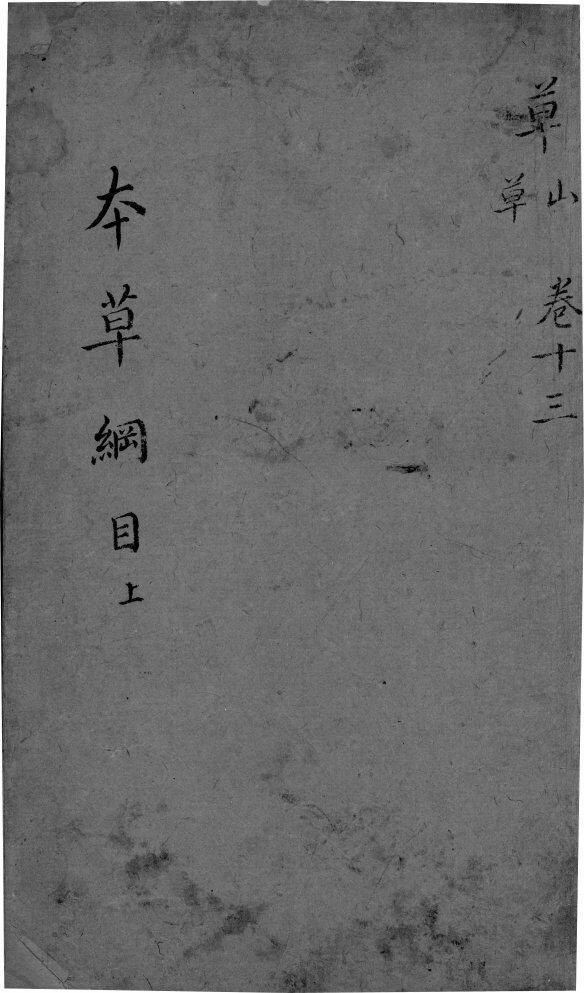 草 山 卷十三
草
本草綱目上